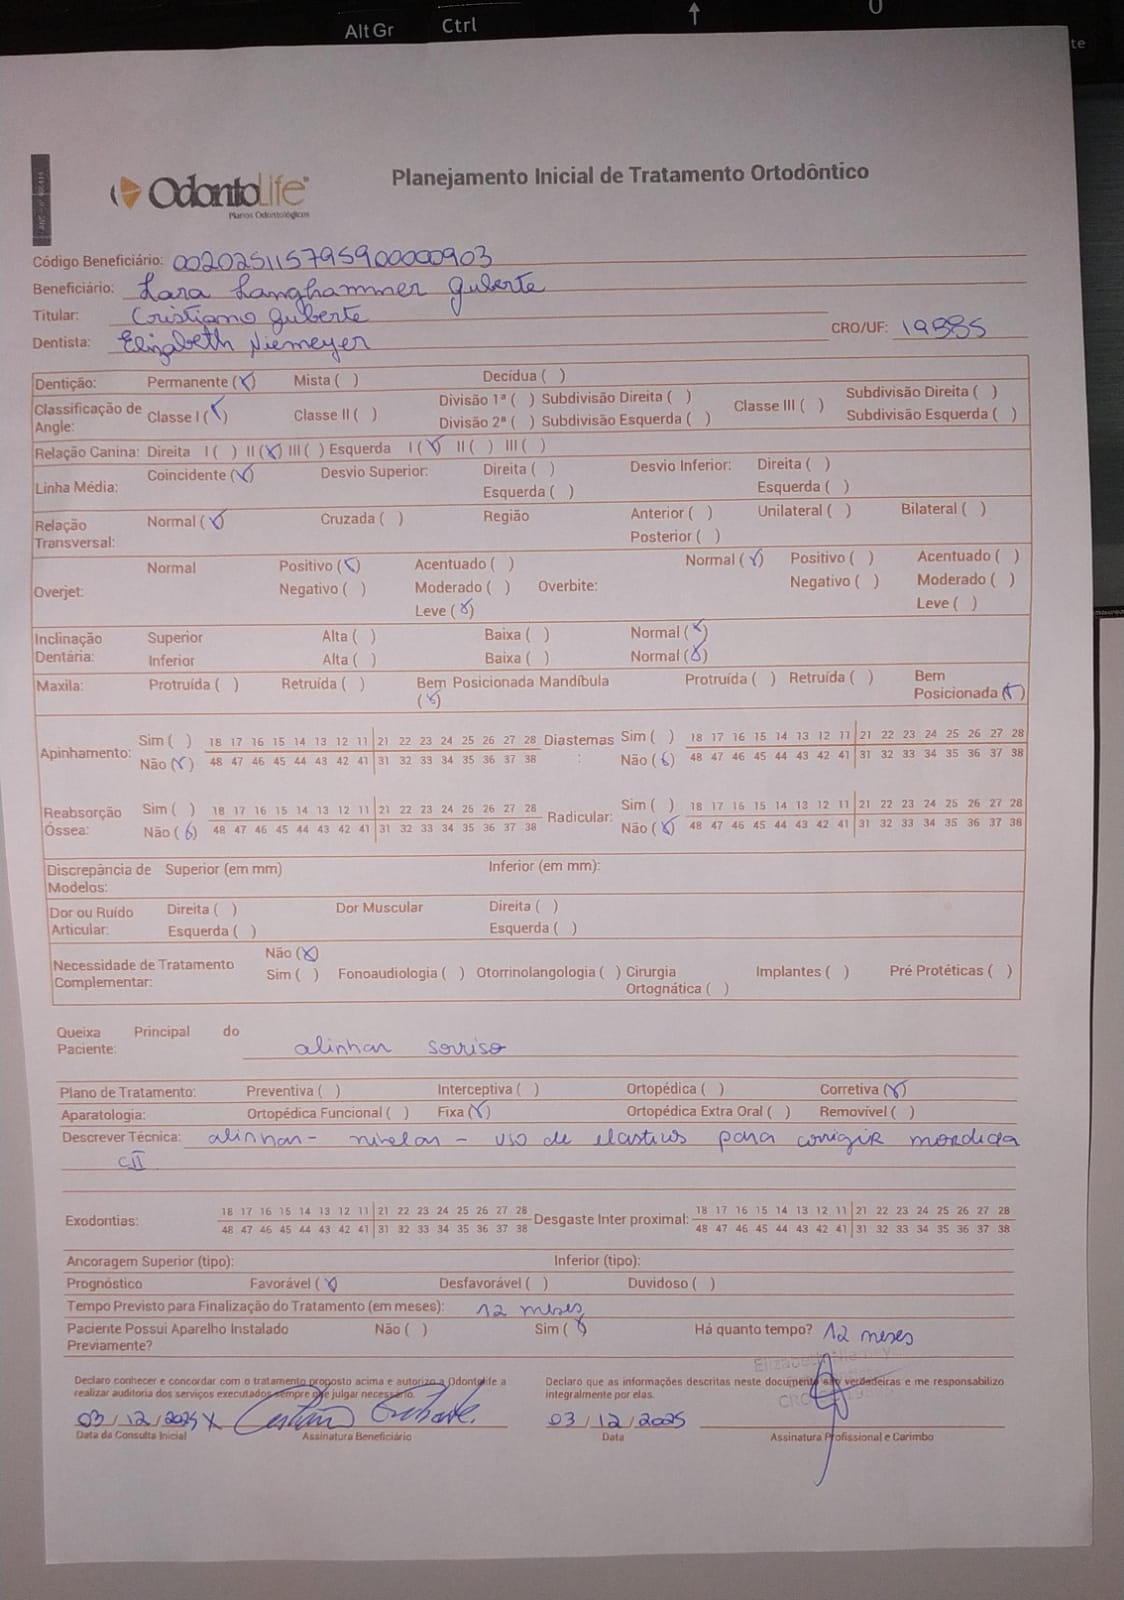 Alt Gr Ctrl ↑
OdontoLife
Planos Odontológicos
Planejamento Inicial de Tratamento Ortodôntico
Código Beneficiário: 00202511579590000903
Beneficiário: Lara Langhammer Guberte
Titular: Cristiano Guberte
Dentista: Elizabeth Niemeyer CRO/UF: 19885
Dentição: Permanente (X) Mista ( ) Decídua ( )
Classificação de Angle: Classe I (X) Classe II ( ) Divisão 1ª ( ) Subdivisão Direita ( ) Classe III ( ) Subdivisão Direita ( )
Divisão 2ª ( ) Subdivisão Esquerda ( ) Subdivisão Esquerda ( )
Relação Canina: Direita I ( ) II (X) III ( ) Esquerda I (X) II ( ) III ( )
Linha Média: Coincidente (X) Desvio Superior: Direita ( ) Desvio Inferior: Direita ( )
Esquerda ( ) Esquerda ( )
Relação Transversal: Normal (X) Cruzada ( ) Região Anterior ( ) Unilateral ( ) Bilateral ( )
Posterior ( )
Overjet: Normal Positivo (X) Acentuado ( ) Overbite: Normal (X) Positivo ( ) Acentuado ( )
Negativo ( ) Moderado ( ) Negativo ( ) Moderado ( )
Leve (X) Leve ( )
Inclinação Dentária: Superior Alta ( ) Baixa ( ) Normal (X)
Inferior Alta ( ) Baixa ( ) Normal (X)
Maxila: Protruída ( ) Retruída ( ) Bem Posicionada (X) Mandíbula Protruída ( ) Retruída ( ) Bem Posicionada (X)
Apinhamento: Sim ( ) 18 17 16 15 14 13 12 11 21 22 23 24 25 26 27 28 Diastemas: Sim ( ) 18 17 16 15 14 13 12 11 21 22 23 24 25 26 27 28
Não (X) 48 47 46 45 44 43 42 41 31 32 33 34 35 36 37 38 Não (X) 48 47 46 45 44 43 42 41 31 32 33 34 35 36 37 38
Reabsorção Óssea: Sim ( ) 18 17 16 15 14 13 12 11 21 22 23 24 25 26 27 28 Radicular: Sim ( ) 18 17 16 15 14 13 12 11 21 22 23 24 25 26 27 28
Não (X) 48 47 46 45 44 43 42 41 31 32 33 34 35 36 37 38 Não (X) 48 47 46 45 44 43 42 41 31 32 33 34 35 36 37 38
Discrepância de Modelos: Superior (em mm) Inferior (em mm):
Dor ou Ruído Articular: Direita ( ) Dor Muscular Direita ( )
Esquerda ( ) Esquerda ( )
Necessidade de Tratamento Complementar: Não (X)
Sim ( ) Fonoaudiologia ( ) Otorrinolangologia ( ) Cirurgia Ortognática ( ) Implantes ( ) Pré Protéticas ( )
Queixa Principal do Paciente: alinhar sorriso
Plano de Tratamento: Preventiva ( ) Interceptiva ( ) Ortopédica ( ) Corretiva (X)
Aparatologia: Ortopédica Funcional ( ) Fixa (X) Ortopédica Extra Oral ( ) Removível ( )
Descrever Técnica: alinhar - nivelar - uso de elasticos para corrigir mordida
CII
Exodontias: 18 17 16 15 14 13 12 11 21 22 23 24 25 26 27 28 Desgaste Inter proximal: 18 17 16 15 14 13 12 11 21 22 23 24 25 26 27 28
48 47 46 45 44 43 42 41 31 32 33 34 35 36 37 38 48 47 46 45 44 43 42 41 31 32 33 34 35 36 37 38
Ancoragem Superior (tipo): Inferior (tipo):
Prognóstico Favorável (X) Desfavorável ( ) Duvidoso ( )
Tempo Previsto para Finalização do Tratamento (em meses): 12 meses
Paciente Possui Aparelho Instalado Previamente? Não ( ) Sim (X) Há quanto tempo? 12 meses
Declaro conhecer e concordar com o tratamento proposto acima e autorizo a Odontolife a
realizar auditoria dos serviços executados sempre que julgar necessário.
Declaro que as informações descritas neste documento são verdadeiras e me responsabilizo
integralmente por elas.
03/12/2025 X 03/12/2025
Data da Consulta Inicial Assinatura Beneficiário Data Assinatura Profissional e Carimbo